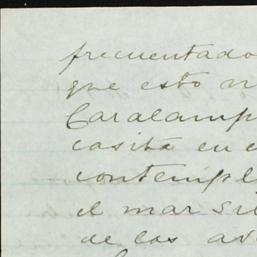 frecuentado
que esto n
Caralamp
casita en e
contempl
el mar su
de los av